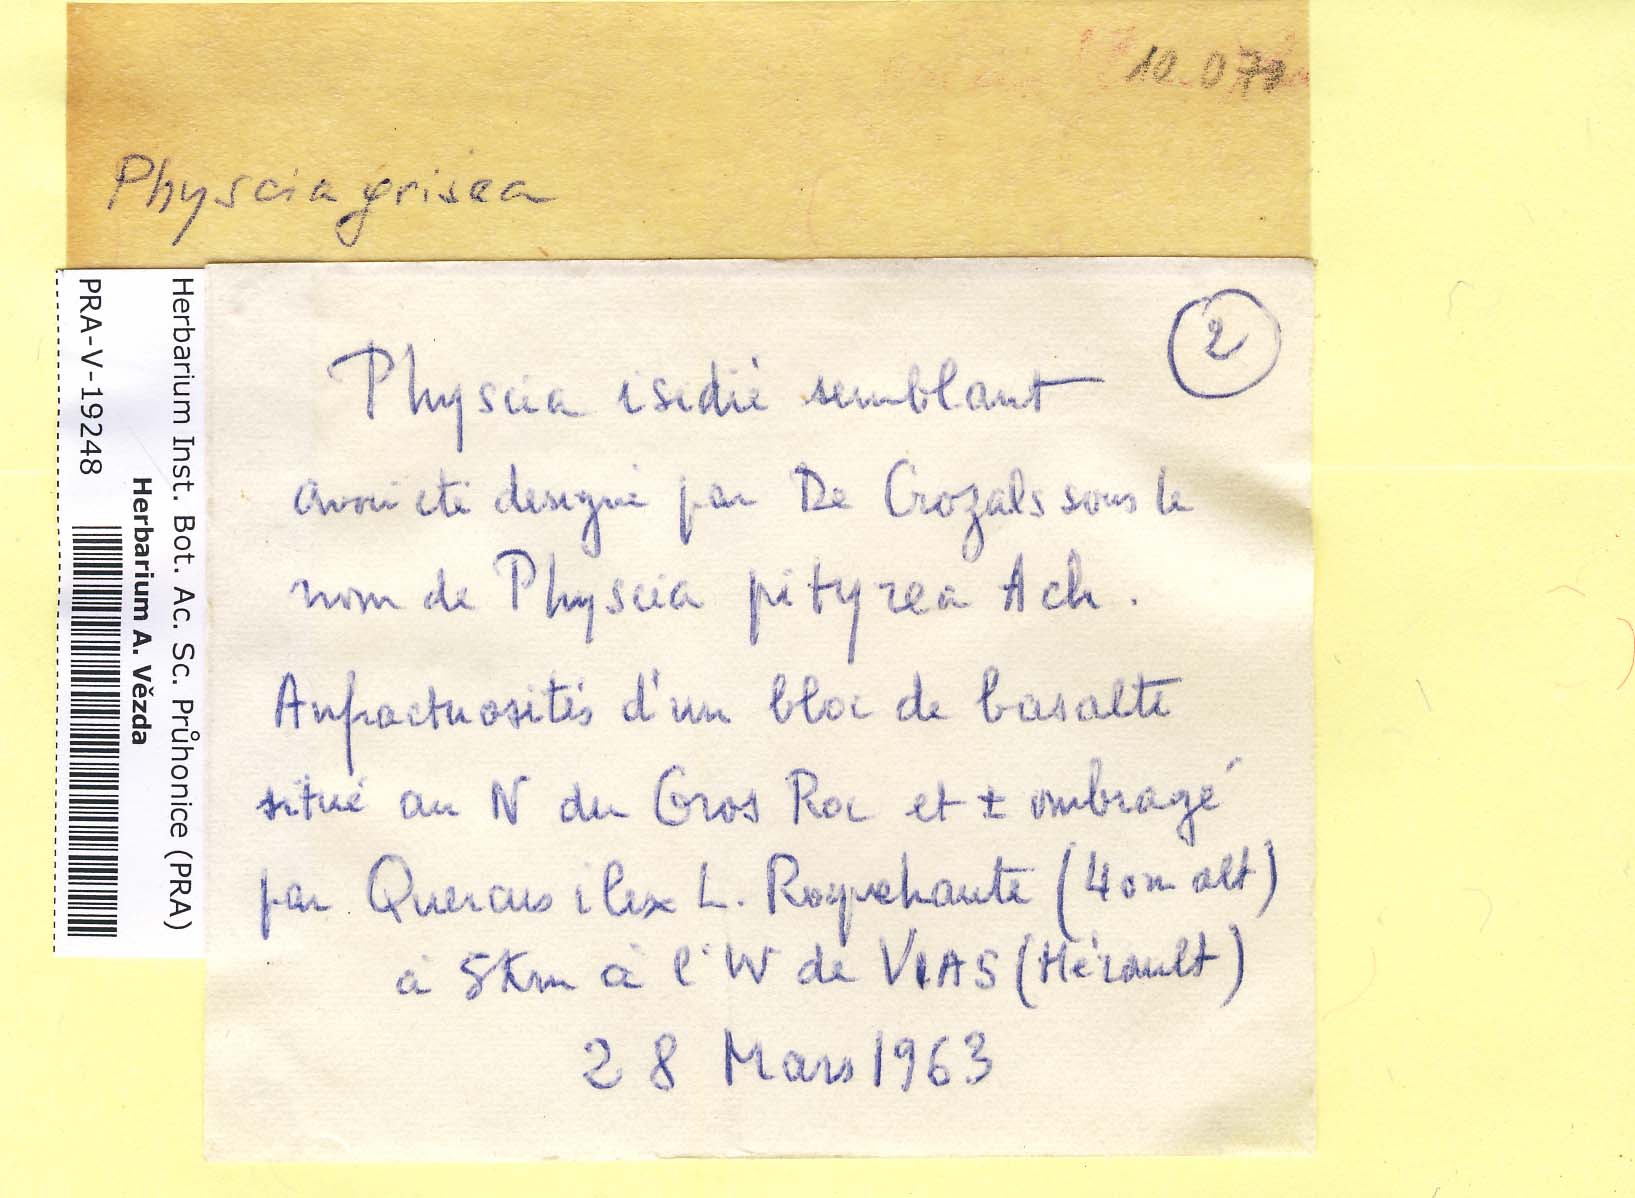 10.071
Physcia grisea
Herbarium Inst. Bot. Ac. Sc. Průhonice (PRA)
Herbarium A. Vězda
PRA-V-19248
2
Physcia isidié semblant
avoir été designé par De Crozals sous le
nom de Physcia pityrea Ach.
Anfractuosités d'un bloc de basalte
situé au N du Gros Roc et ± ombragé
par Quercus ilex L. Roquehaute (40m alt)
à 5Km à l'W de VIAS (Hérault)
28 Mars 1963